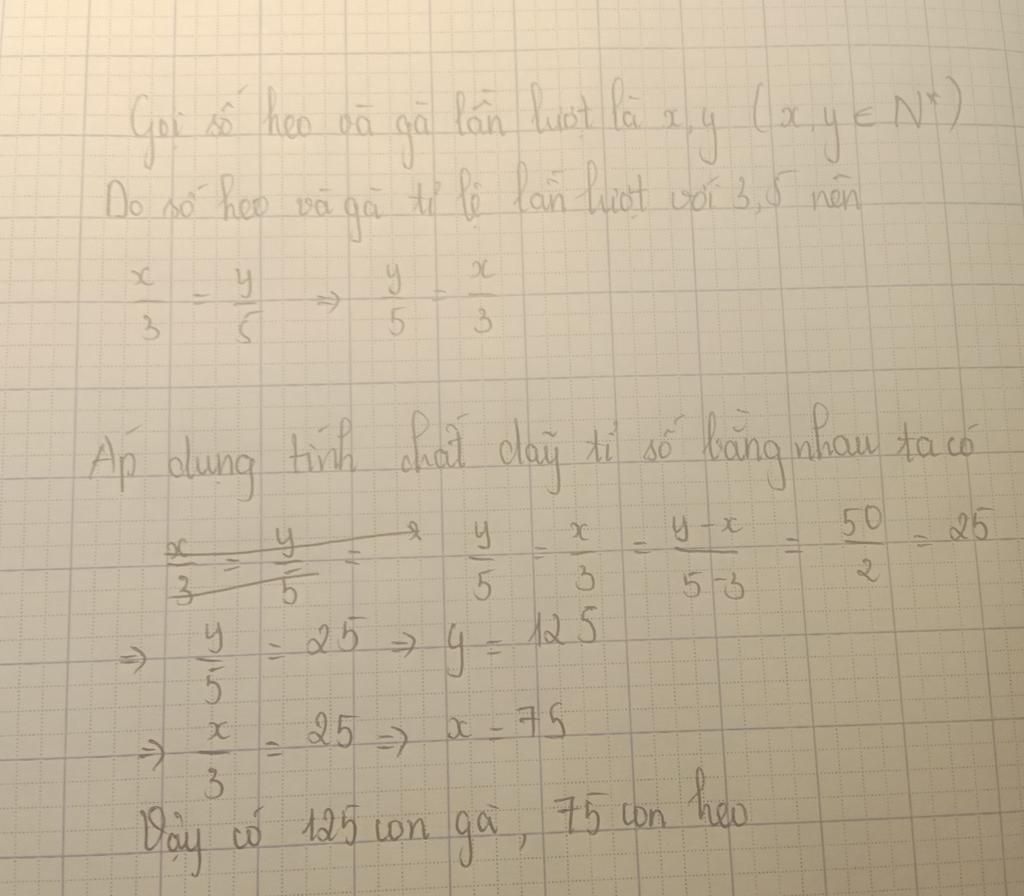 Gọi số heo và gà lần lượt là x, y (x, y ∈ N*)
Do số heo và gà tỉ lệ lần lượt với 3, 5 nên
x/3 = y/5 ⇒ y/5 = x/3
Áp dụng tính chất dãy tỉ số bằng nhau ta có
x/3 = y/5 = y/5 = x/3 = y-x/5-3 = 50/2 = 25
⇒ y/5 = 25 ⇒ y = 125
⇒ x/3 = 25 ⇒ x = 75
Vậy có 125 con gà, 75 con heo